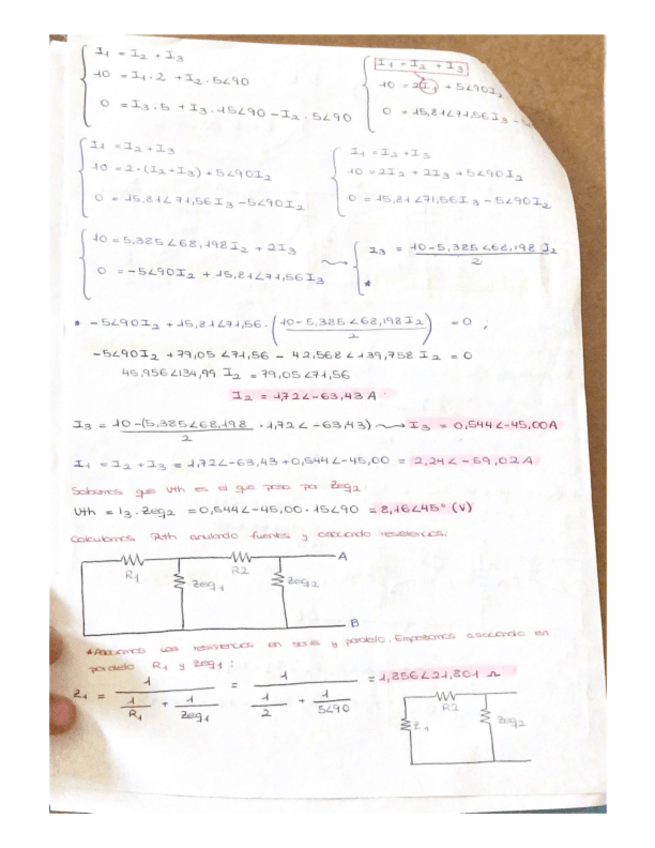 I1 = I2 + I3
10 = I1·2 + I2·5∠90
0 = I3·5 + I3·15∠90 - I2·5∠90
I1 = I2 + I3
10 = 2I1 + 5∠90I2
0 = 15,81∠71,56I3 - 5
I1 = I2 + I3
10 = 2·(I2+I3) + 5∠90I2
0 = 15,81∠71,56I3 - 5∠90I2
I1 = I2 + I3
10 = 2I2 + 2I3 + 5∠90I2
0 = 15,81∠71,56I3 - 5∠90I2
10 = 5,385∠68,198I2 + 2I3
0 = -5∠90I2 + 15,81∠71,56I3
I3 = 10-5,385∠68,198 I2 / 2
*
* -5∠90I2 + 15,81∠71,56·(10-5,385∠68,198I2 / 2) = 0 ;
-5∠90I2 + 79,05∠71,56 - 42,568∠139,758 I2 = 0
45,956∠134,99 I2 = 79,05∠71,56
I2 = 1,72∠-63,43 A
I3 = 10-(5,385∠68,198 · 1,72∠-63,43) / 2 → I3 = 0,544∠-45,00A
I1 = I2 + I3 = 1,72∠-63,43 + 0,544∠-45,00 = 2,24∠-59,02A
Sabemos que Vth es el que pasa por Zeq2:
Vth = I3·Zeq2 = 0,544∠-45,00·15∠90 = 8,16∠45° (V)
Calculamos Rth anulando fuentes y asociando resistencias:
R1
Zeq1
R2
Zeq2
A
B
*Asociamos las resistencias en serie y paralelo. Empezamos asociando en
paralelo R1 y Zeq1:
Z1 = 1 / (1/R1 + 1/Zeq1) = 1 / (1/2 + 1/5∠90) = 1,856∠21,801 Ω
Z1
R2
Zeq2